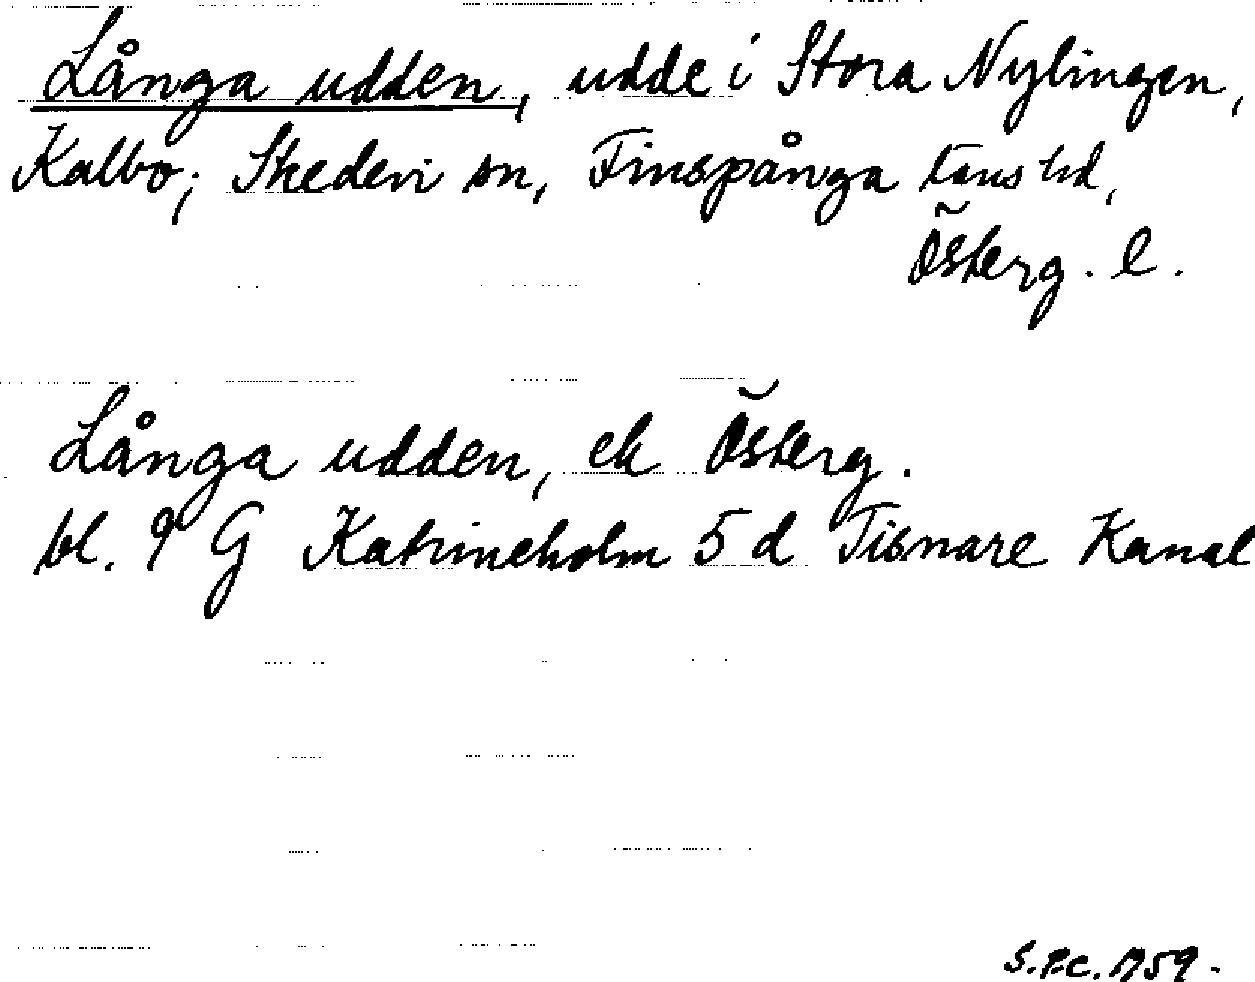 Långa udden, udde i Stora Nylingen,
Kalbo; Skedevi sn, Finspånga läns hd,
Österg. l.
Långa udden, ek Österg.
bl. 9 G Katrineholm 5 d Tisnare Kanal
S.P.C. 1959.